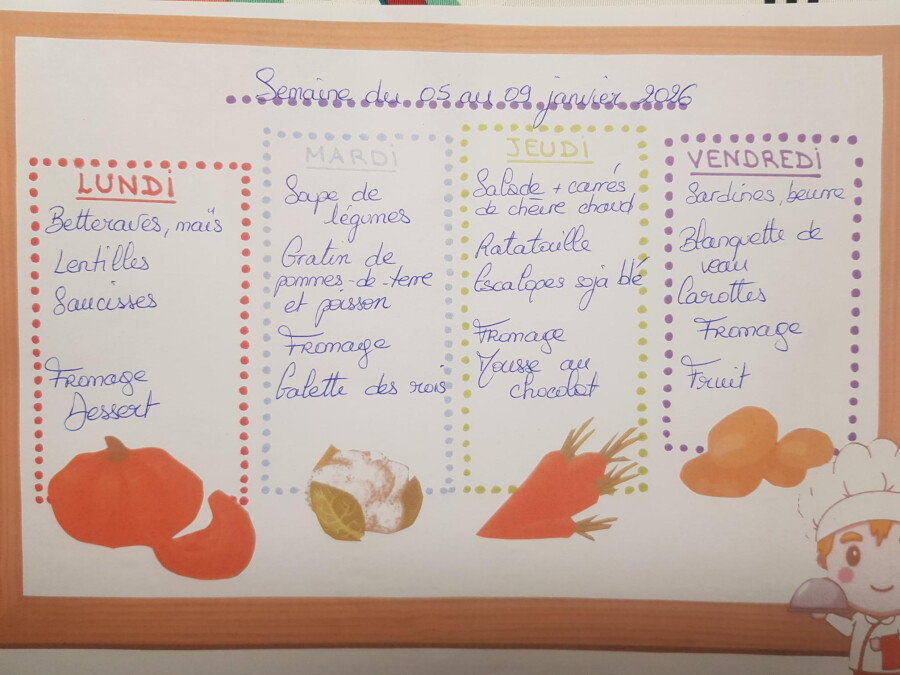 Semaine du 05 au 09 janvier 2026
LUNDI
Betteraves, maïs
Lentilles
Saucisses
Fromage
Dessert
MARDI
Soupe de
légumes
Gratin de
pommes-de-terre
et poisson
Fromage
Galette des rois
JEUDI
Salade + carrés
de chèvre chaud
Ratatouille
Escalopes soja blé
Fromage
Mousse au
chocolat
VENDREDI
Sardines, beurre
Blanquette de
veau
Carottes
Fromage
Fruit